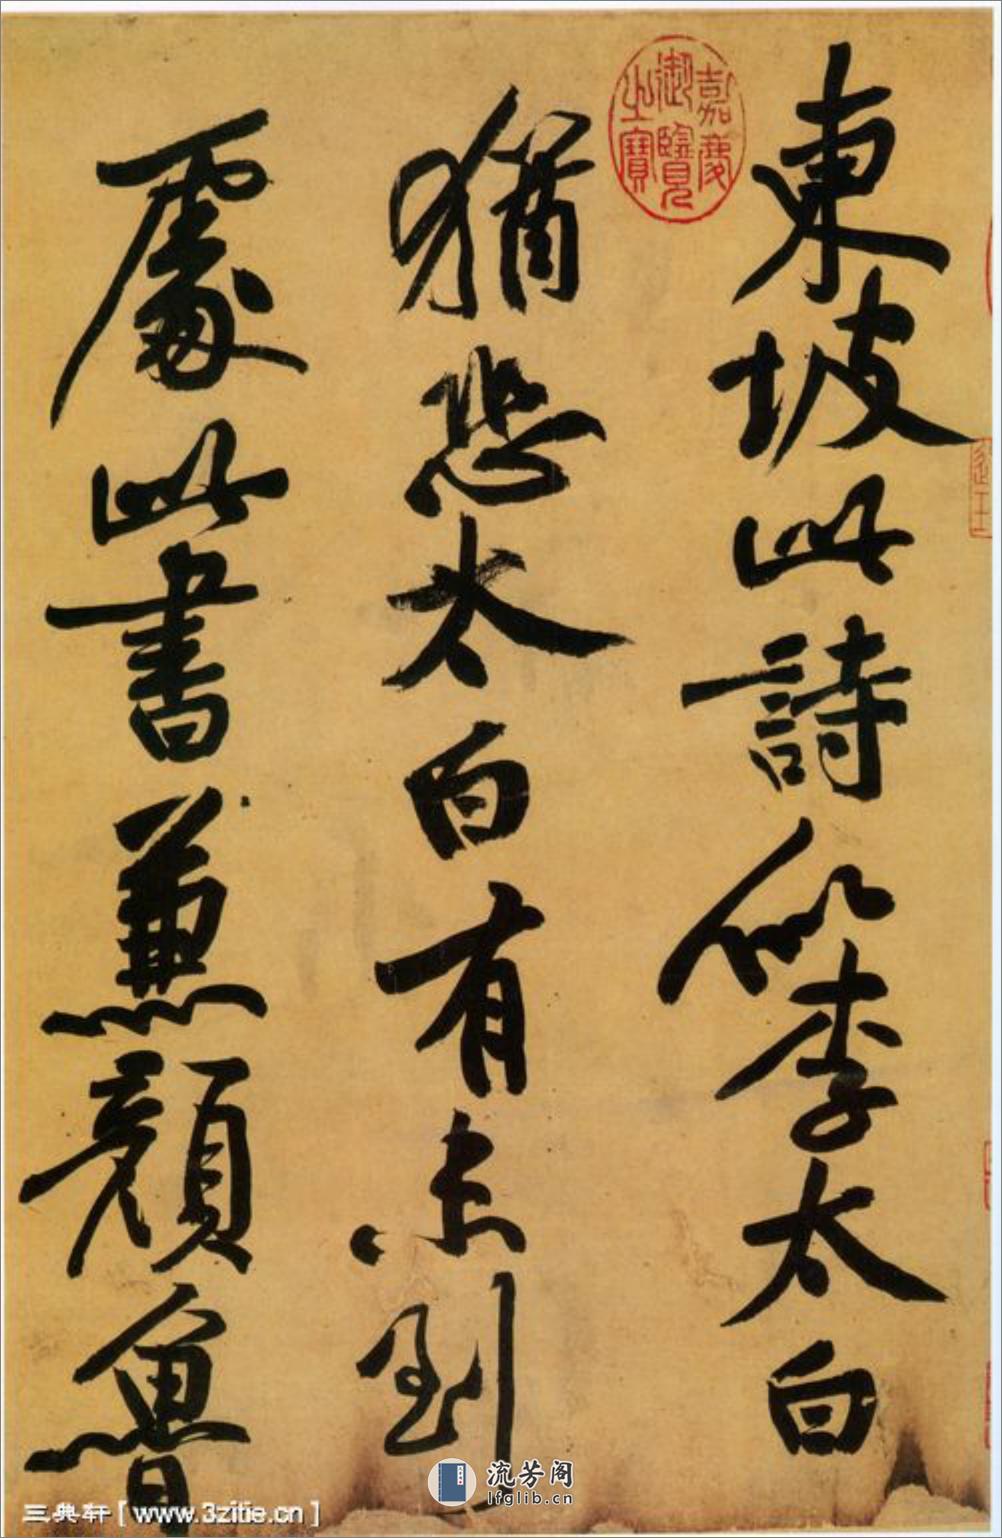 東坡此詩似李太白
猶恐太白有未到
處此書兼顏魯
嘉慶
御覽
之寶
三典轩[www.3zitie.cn]
流芳阁
lfglib.cn